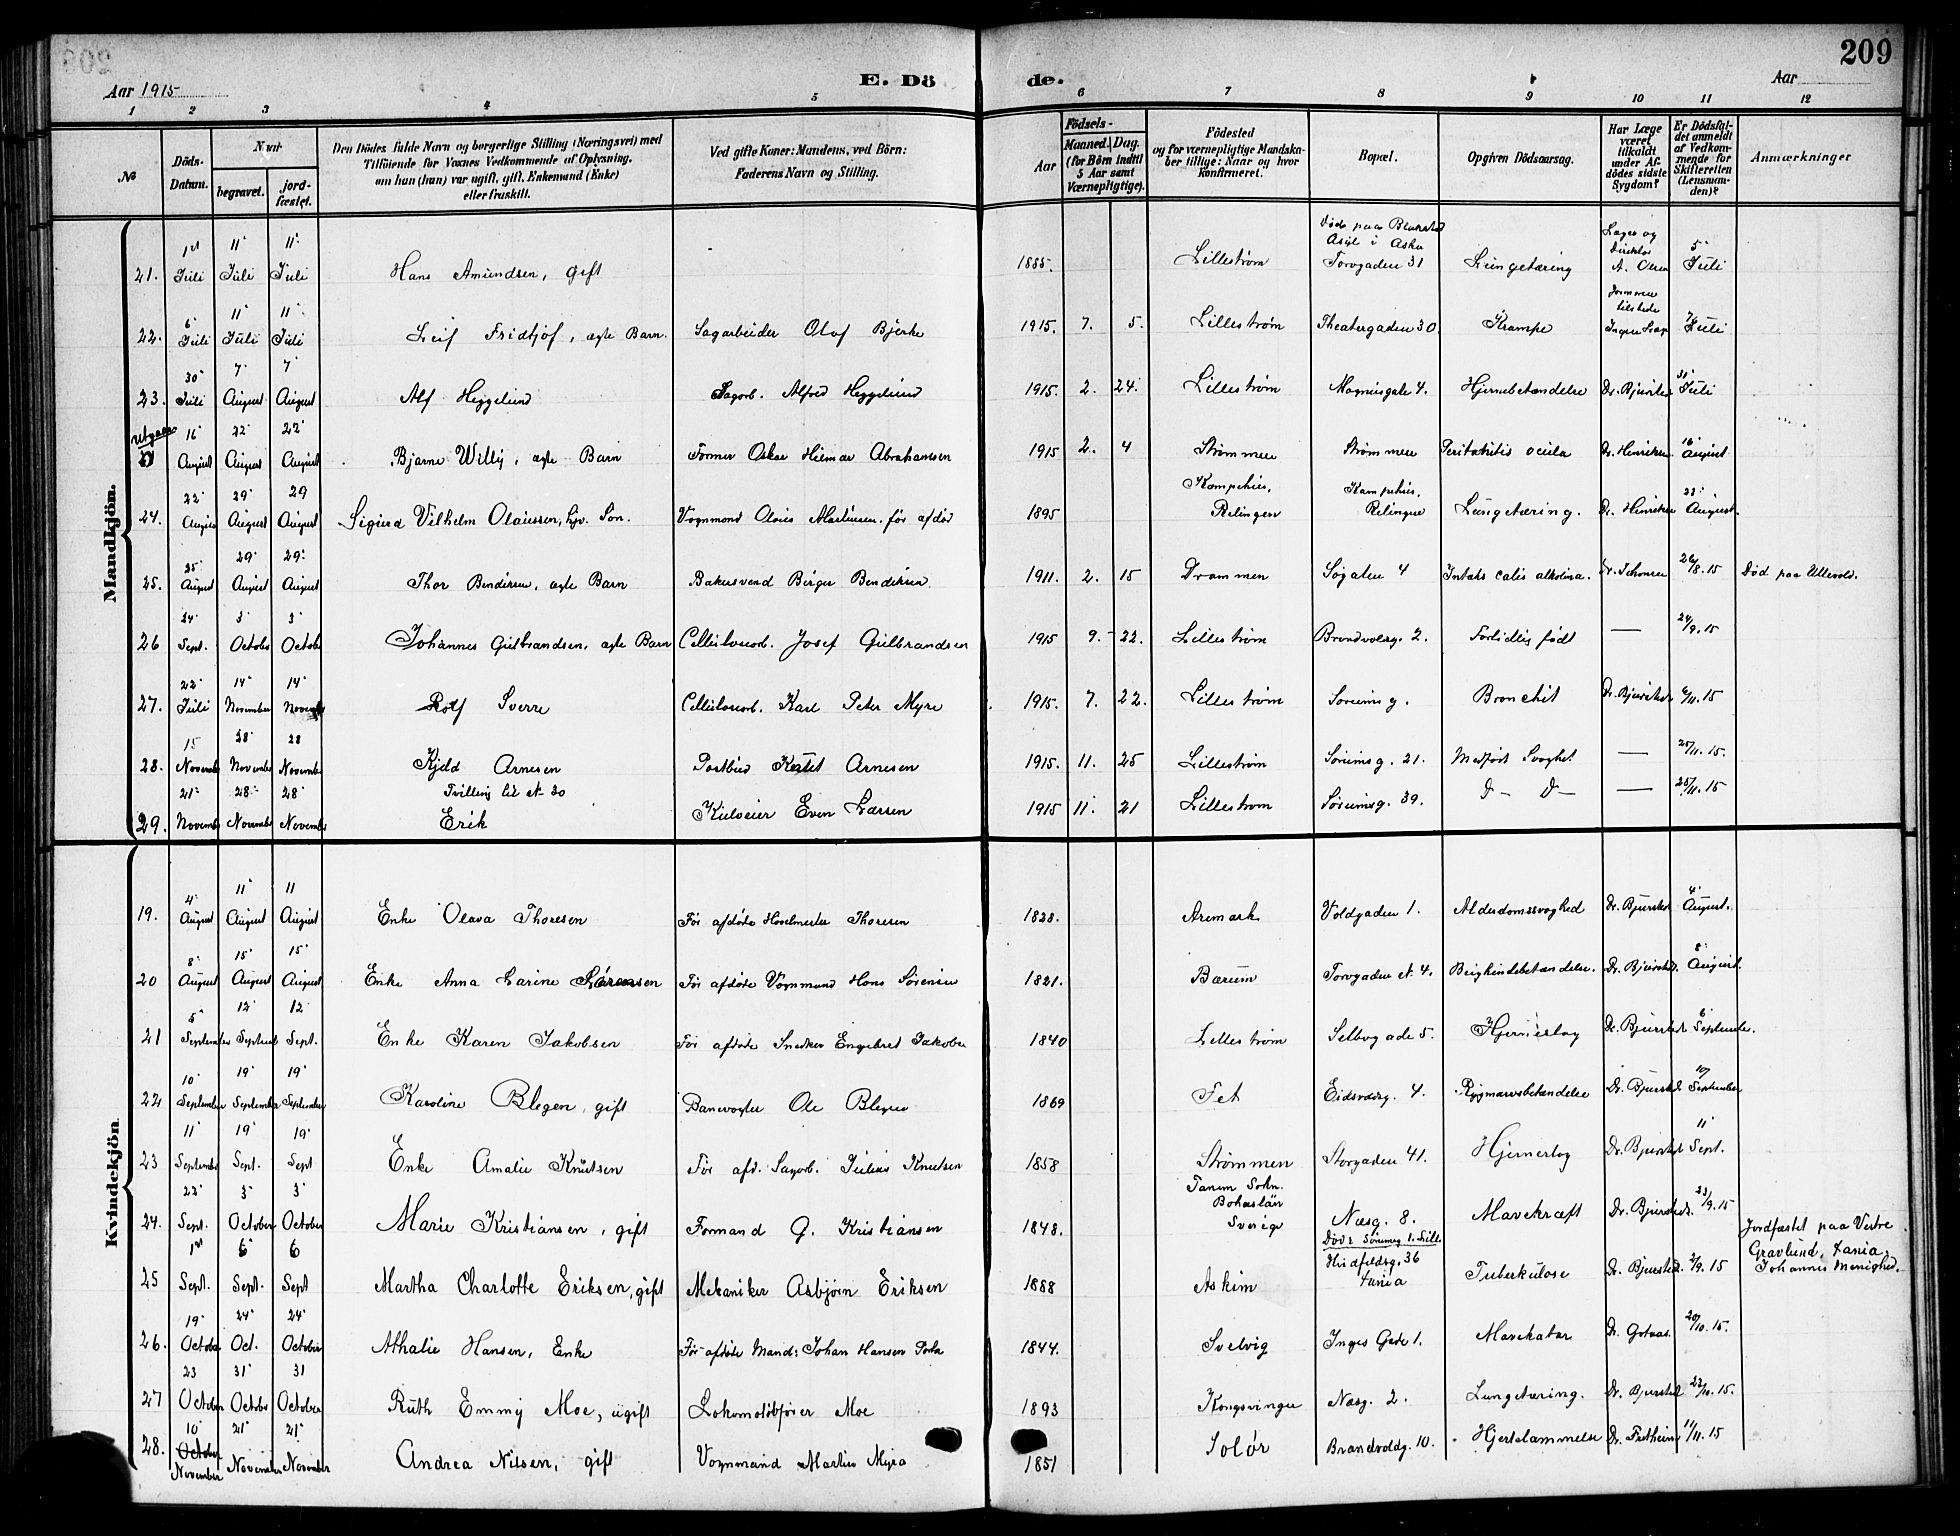 209
Aar 1915
E. Dö
de.
Aar
1 2 3 4 5 6 7 8 9 10 11 12
№
Döds-
Datum.
Naar
begravet.
jord-
fæstet.
Den Dödes fulde Navn og borgerlige Stilling (Næringsvei) med
Tilföiende for Voxnes Vedkommende af Oplysning,
om han (hun) var ugift, gift, Enkemand (Enke)
eller fraskilt.
Ved gifte Koner: Mandens, ved Börn:
Faderens Navn og Stilling.
Aar
Födsels-
Maaned. Dag.
(for Börn indtil
5 Aar samt
Værnepligtige).
Födested
og for værnepligtige Mandska-
ber tillige: Naar og hvor
konfirmeret.
Bopæl.
Opgiven Dödsaarsag.
Har Læge
været
tilkaldt
under Af-
dödes sidste
Sygdom?
Er Dödsfal-
det anmeldt
af Vedkom-
mende for
Skifteretten
(Lensman-
den)?
Anmærkninger
Mandkjön.
21. 1st Juli 11' Juli 11' Juli Hans Amundsen, gift 1885. Lillestrøm Død paa Asyl i Asker Torvgaden 31 Lungetæring Læge og Direktør A. 5' Juli
22. 6' Juli 11' Juli 11' Juli Leif Fridtjof, ægte Barn. Sagarbeider Olaf Bjerke 1915. 7. 5. Lillestrøm Theatergaden 30. Krampe 7' Juli
23. 30' Juli 7' August 7' August Alf Heggelund Sagarb. Alfred Heggelund 1915. 2. 24. Lillestrøm Magnusgate 4. Hjernebetændelse Dr. Bjursted 31' Juli
Utgaar 16' August 22' August 22' August Bjarne Willy, ægte Barn Former Oskar Hilmar Abrahamsen 1915 2. 4 Strømmen Strømmen Dr. Henriksen 16' August
24. 22' August 29' August 29 August Sigurd Vilhelm Olaussen, hjv. Søn. Vognmand Olaus Martinsen. før afdød 1895 Kampehus, Relingen Kampehus, Relingen Lungetæring. Dr. Henriksen 23' August
25. 25' August 29' August 29' August Thor Bendiksen, ægte Barn Bakersvend Birger Bendiksen 1911. 2. 15 Drammen Søgaten 4 26/8. 15 Død paa Ullevold.
26 24' Sept. 3' October 3' October Johannes Gulbrandsen, ægte Barn Cellulosearb. Josef Gulbrandsen 1915 9. - 22. Lillestrøm Brandvoldg. 2. Fortidlig født — 24/9. 15
27. 22' Juli 14' November 14' November Rolf Sverre Cellulosearb. Karl Peter Myre 1915. 7. 22. Lillestrøm Sørumsg. Bronchit Dr. Bjursted 6/11. 15
28. 15 November 28' November 28 November Kjeld Arnesen Postbud Arnesen 1915. 11. 25 Lillestrøm Sørumsg. 21. Medfødt Svaghet — 25/11. 15.
29. 21' November 28' November 28' November Tvilling til № 30 Erik Kulveier Even Larsen 1915 11. 21 Lillestrøm Sørumsg. 39. D— D— — 25/11. 15
Kvindekjön.
19. 4' August 11' August 11 August Enke Olava Thoresen Før afdøde Hovelmester Thoresen 1828. Aremark Voldgaden 1. Alderdomssvaghed Dr. Bjursted 4' August.
20 8' August 15' August 15' August Enke Anna Karine Sørensen Før afdøde Vognmand Hans Sørensen 1821. Bærum Torvgaden № 4. Dr. Bjursted 8' August.
21 5' September 12 September 12 Sept. Enke Karen Jakobsen Før afdøde Snedker Engebret Jakobsen 1840 Lillestrøm Solbogade 5. Hjerneslag Dr. Bjursted 6' September.
22 10' September 19' September 19' September Karoline Blegen, gift Banevogter Ole Blegen 1869 Fet Eidsvoldg. 4. Rygmarvsbetændelse Dr. Bjursted 10/ September
23 11' September 19' Sept. 19' Sept Enke Amalie Knutsen Før afd. Sagarb. Julius Knutsen 1858 Strømmen Storgaden 41. Hjerneslag Dr. Bjursted 11 Sept.
24. 22' Sept. 3' October 3' October Marie Kristiansen, gift Formand G. Kristiansen 1848. Tanum Sokn. Bohuslän Sverige Næsg. 8. Mavekræft Dr. Bjursted. 23/9. 15
25 1st Sept. 6' Sept. 6 Sept Martha Charlotte Eriksen, gift Mekaniker Asbjørn Eriksen 1888 Askim Død: Sørumsg 1. Lille. Hindfeldsg. 36 Xania Tuberkulose Dr. Bjursted. 2/9. 15 Jordfæstet paa Vestre Gravlund, Xania, Johannis Menighed.
26. 19' October 24' Oct. 24' October Athalie Hansen, Enke Før afdøde Mand: Johan Hansen 1844. Svelvig Inges Gade 1. Mavekatar Dr. Gotaas. 20/10. 15.
27 23 October 31' October 31 October Ruth Emmy Moe, ugift Lokomotivfører Moe 1893 Kongsvinger Næsg. 2. Lungetæring. Dr. Bjursted 23/10. 15.
28. 10' October November 21' November 21' November Andrea Nilsen, gift Vognmand Martin Myra 1851 Solør Brandvoldg. 10. Hjertelammelse Dr. Fretheim 11/11. 15